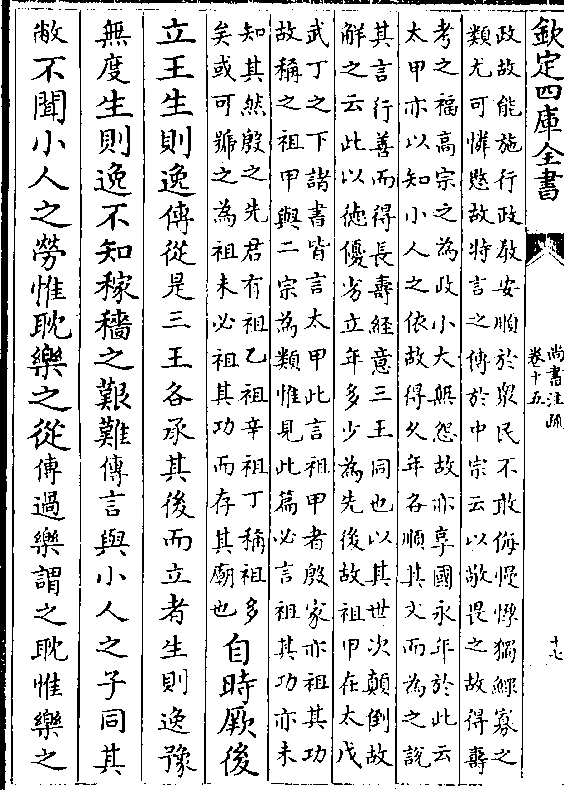 欽定四庫全書
尚書注疏
卷十五
十七
政故能施行政教安順於衆民不敢侮慢惸獨鰥寡之
類尤可憐愍故特言之傳於中宗云以敬畏之故得壽
考之福高宗之為政小大無怨故亦享國永年於此云
太甲亦以知小人之依故得久年各順其文而為之說
其言行善而得長壽經意三王同也以其世次顛倒故
解之云此以德優劣立年多少為先後故祖甲在太戊
武丁之下諸書皆言太甲此言祖甲者殷家亦祖其功
故稱之祖甲與二宗為類惟見此篇必言祖其功亦未
知其然殷之先君有祖乙祖辛祖丁稱祖多
矣或可號之為祖未必祖其功而存其廟也
自時厥後
立王生則逸傳從是三王各承其後而立者生則逸豫
無度生則逸不知稼穡之艱難傳言與小人之子同其
敝不聞小人之勞惟耽樂之從傳過樂謂之耽惟樂之